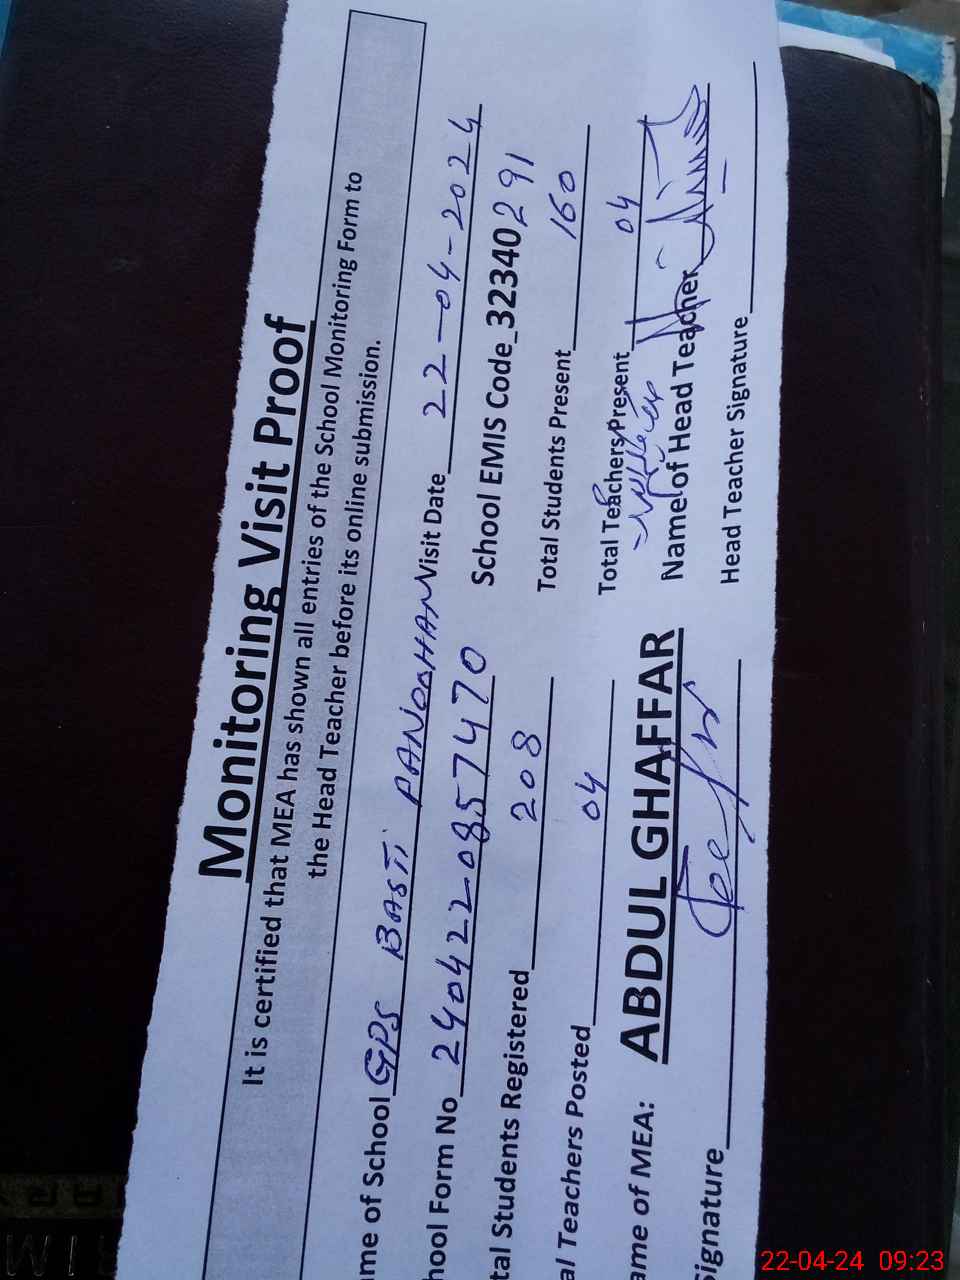 Monitoring Visit Proof
It is certified that MEA has shown all entries of the School Monitoring Form to
the Head Teacher before its online submission.
ame of School GPS BASTI Visit Date 22-04-2024
hool Form No 2404220857470 School EMIS Code_32340291
tal Students Registered 208 Total Students Present 160
al Teachers Posted 04 Total Teachers Present 04
ame of MEA: ABDUL GHAFFAR Name of Head Teacher
Signature Head Teacher Signature
22-04-24 09:23